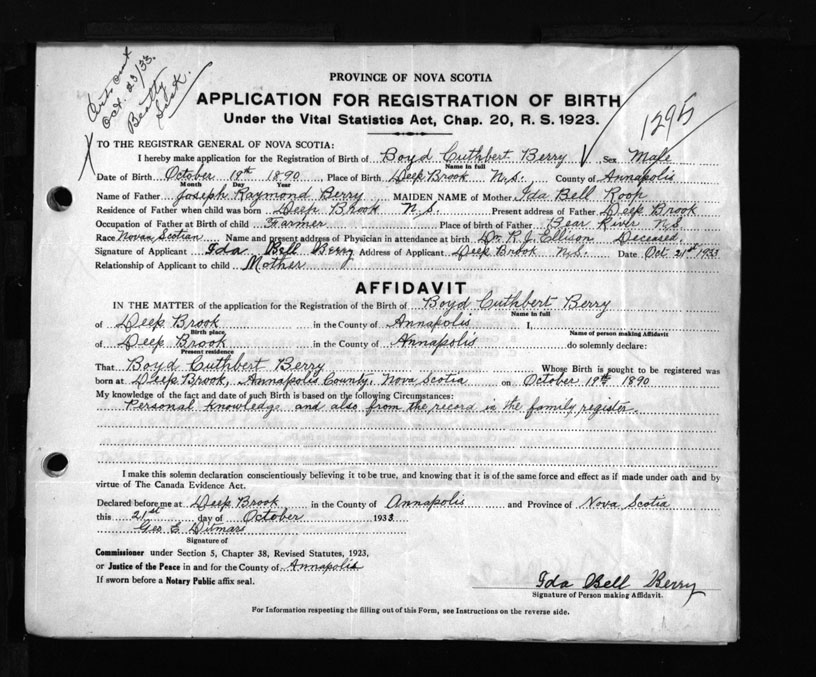 Oct. 23/33.
PROVINCE OF NOVA SCOTIA
APPLICATION FOR REGISTRATION OF BIRTH
Under the Vital Statistics Act, Chap. 20, R. S. 1923.
1295
TO THE REGISTRAR GENERAL OF NOVA SCOTIA:
I hereby make application for the Registration of Birth of Boyd Cuthbert Berry Sex Male
Name in full
Date of Birth October 19th 1890 Place of Birth Deep Brook N.S. County of Annapolis
Month Day Year
Name of Father Joseph Raymond Berry MAIDEN NAME of Mother Ida Bell Roop
Residence of Father when child was born Deep Brook N.S. Present address of Father Deep Brook
Occupation of Father at Birth of child Farmer Place of birth of Father Bear River N.S.
Race Novan Scotian Name and present address of Physician in attendance at birth Dr. R. J. Ellison Deceased
Signature of Applicant Ida Bell Berry Address of Applicant Deep Brook N.S. Date Oct 21st 1933
Relationship of Applicant to child Mother
AFFIDAVIT
IN THE MATTER of the application for the Registration of the Birth of Boyd Cuthbert Berry
Name in full
of Deep Brook in the County of Annapolis I,
Birth place Name of person making Affidavit
of Deep Brook in the County of Annapolis do solemnly declare:
Present residence
That Boyd Cuthbert Berry Whose Birth is sought to be registered was
born at Deep Brook, Annapolis County, Nova Scotia on October 19th 1890
My knowledge of the fact and date of such Birth is based on the following Circumstances:
Personal knowledge and also from the record in the family register.
I make this solemn declaration conscientiously believing it to be true, and knowing that it is of the same force and effect as if made under oath and by
virtue of The Canada Evidence Act.
Declared before me at Deep Brook in the County of Annapolis and Province of Nova Scotia
this 21st day of October 1933
Geo. E. Ditmars
Signature of
Commissioner under Section 5, Chapter 38, Revised Statutes, 1923,
or Justice of the Peace in and for the County of Annapolis
If sworn before a Notary Public affix seal.
Ida Bell Berry
Signature of Person making Affidavit.
For Information respecting the filling out of this Form, see Instructions on the reverse side.